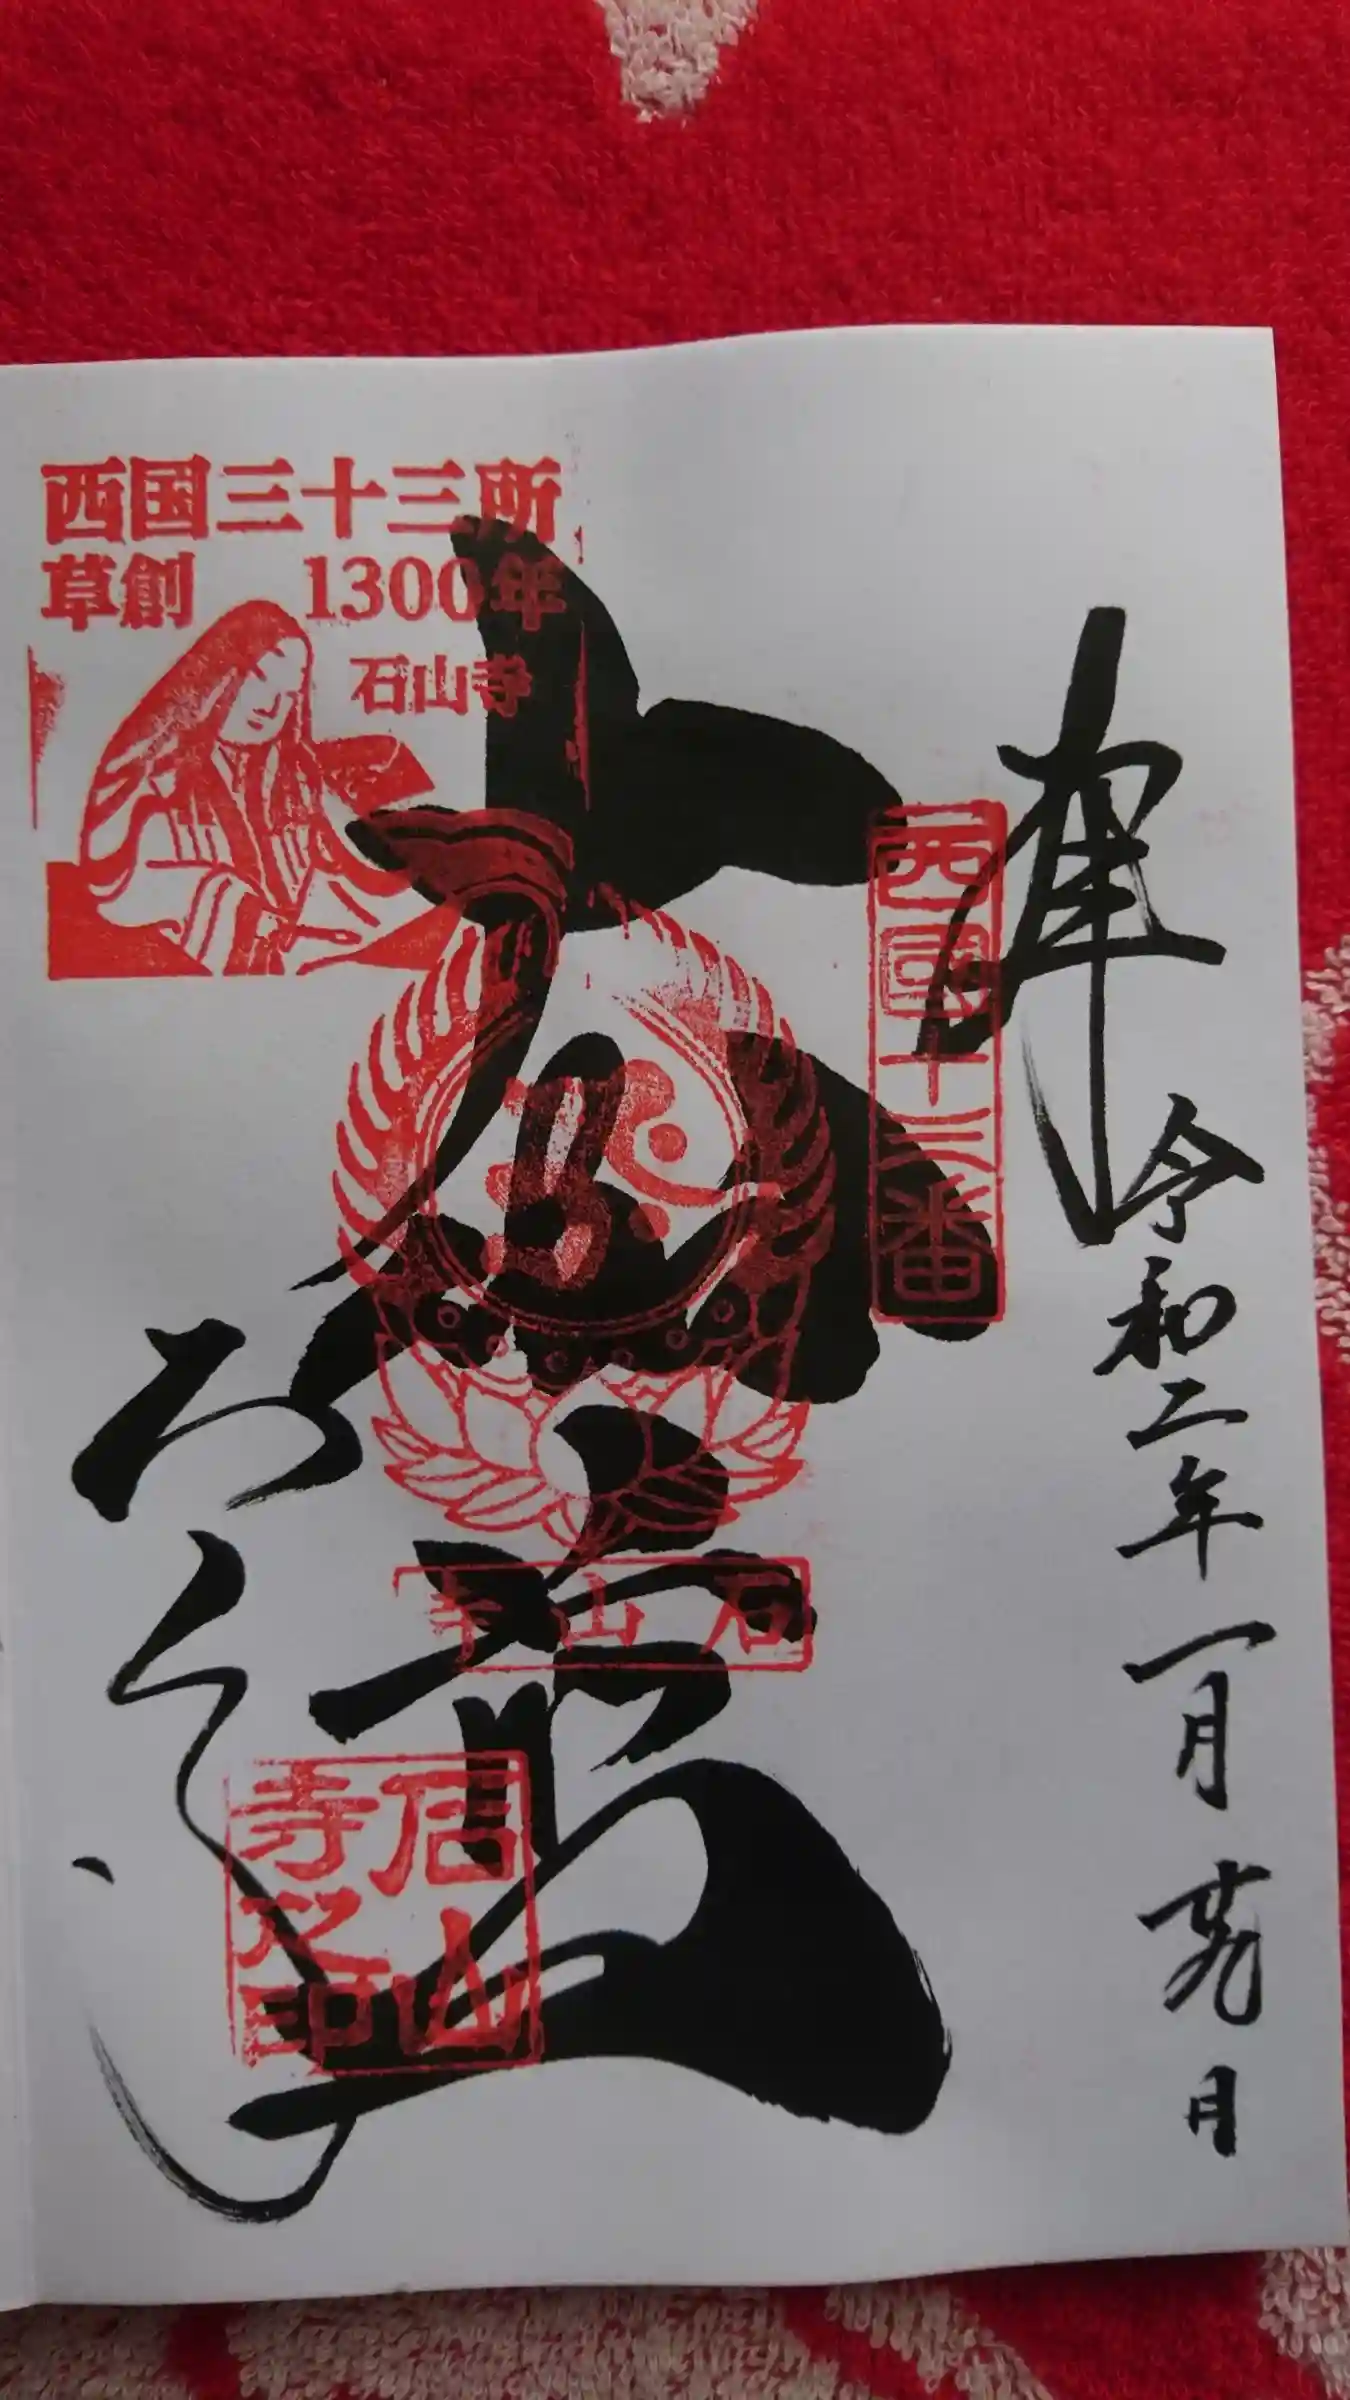 奉拝
令和二年一月廿九日
西國十三番
大悲殿
石山寺
石山寺之印
西国三十三所
草創 1300年
石山寺